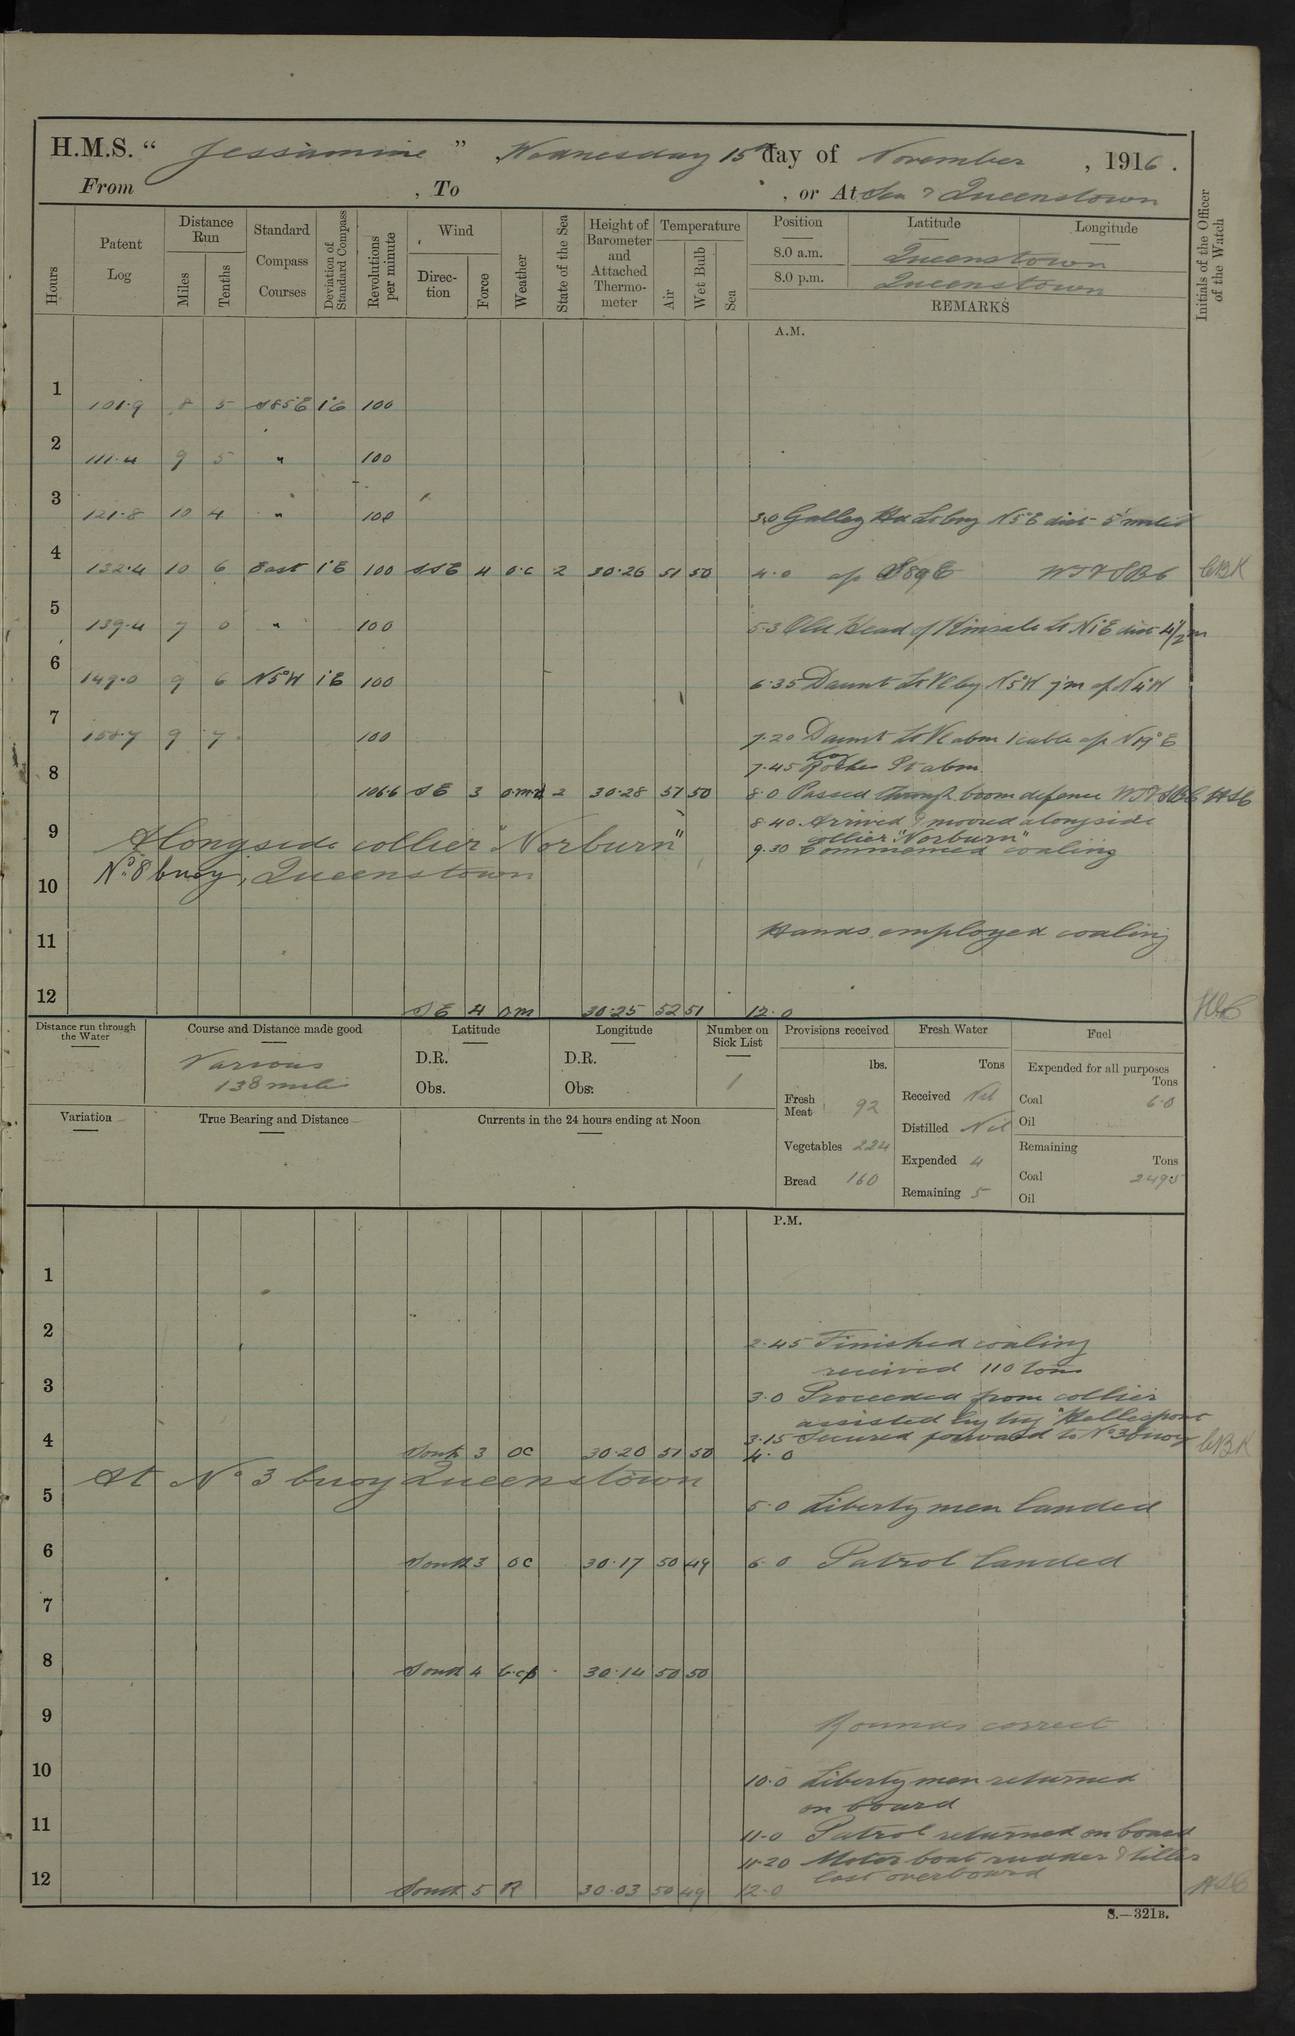 H.M.S. “ Jessamine ” Wednesday 15th day of November , 1916 .
From , To , or At Sea & Queenstown
Hours
Patent Log
Distance Run
Miles
Tenths
Standard Compass Courses
Deviation of Standard Compass
Revolutions per minute
Wind
Direction
Force
Weather
State of the Sea
Height of Barometer and Attached Thermometer
Temperature
Air
Wet Bulb
Sea
Position Latitude Longitude
8.0 a.m. Queenstown
8.0 p.m. Queenstown
REMARKS
Initials of the Officer of the Watch
A.M.
1 101.9 8 5 S85°E 1°E 100
2 111.4 9 5 " 100
3 121.8 10 4 " 100 3.0 Galley Hd Lt brg N5°E dist 5 miles
4 132.4 10 6 East 1°E 100 SSE 4 o.c 2 30.26 51 50 4.0 a/c S89E CBK
5 139.4 7 0 " 100 5.3 Old Head of Kinsale Lt N1°E dist 4½ m
6 149.0 9 6 N5°W 1°E 100 6.35 Daunt Lt Vl brg N5°W 7m a/c N4°W
7 158.7 9 7 100 7.20 Daunt Lt Vl abm 1 cable a/c N19°E
7.45 Roches Pt abm
8 1066 SE 3 2 30.28 51 50 8.0 Passed through boom defence
8.40 Arrived & moored alongside
collier "Norburn"
9 Alongside collier "Norburn" 9.30 Commenced coaling
10 No. 8 buoy, Queenstown
11 Hands employed coaling
12 SE 4 o.m 30.25 52 51 12.0
Distance run through the Water
Course and Distance made good
Various
138 miles
Latitude
D.R.
Obs.
Longitude
D.R.
Obs.
Number on Sick List
1
Variation
True Bearing and Distance
Currents in the 24 hours ending at Noon
Provisions received
lbs.
Fresh Meat 92
Vegetables 224
Bread 160
Fresh Water
Tons
Received Nil
Distilled Nil
Expended 4
Remaining 5
Fuel
Expended for all purposes
Tons
Coal 6.0
Oil
Remaining
Tons
Coal 249.5
Oil
P.M.
1
2 2.45 Finished coaling
received 110 tons
3 3.0 Proceeded from collier
assisted by tug "Hellespont
3.15 Secured forward to No 3 buoy
4 South 3 OC 30.20 51 50 4.0 CBK
At No 3 buoy Queenstown
5 5.0 Liberty men landed
6 South 3 OC 30.17 50 49 6.0 Patrol landed
7
8 South 4 30.14 50 50
9 Rounds correct
10 10.0 Liberty men returned
on board
11 11.0 Patrol returned on board
11.20 Motor boat rudder & tiller
lost overboard
12 South 5 R 30.03 50 49 12.0
S.—321B.